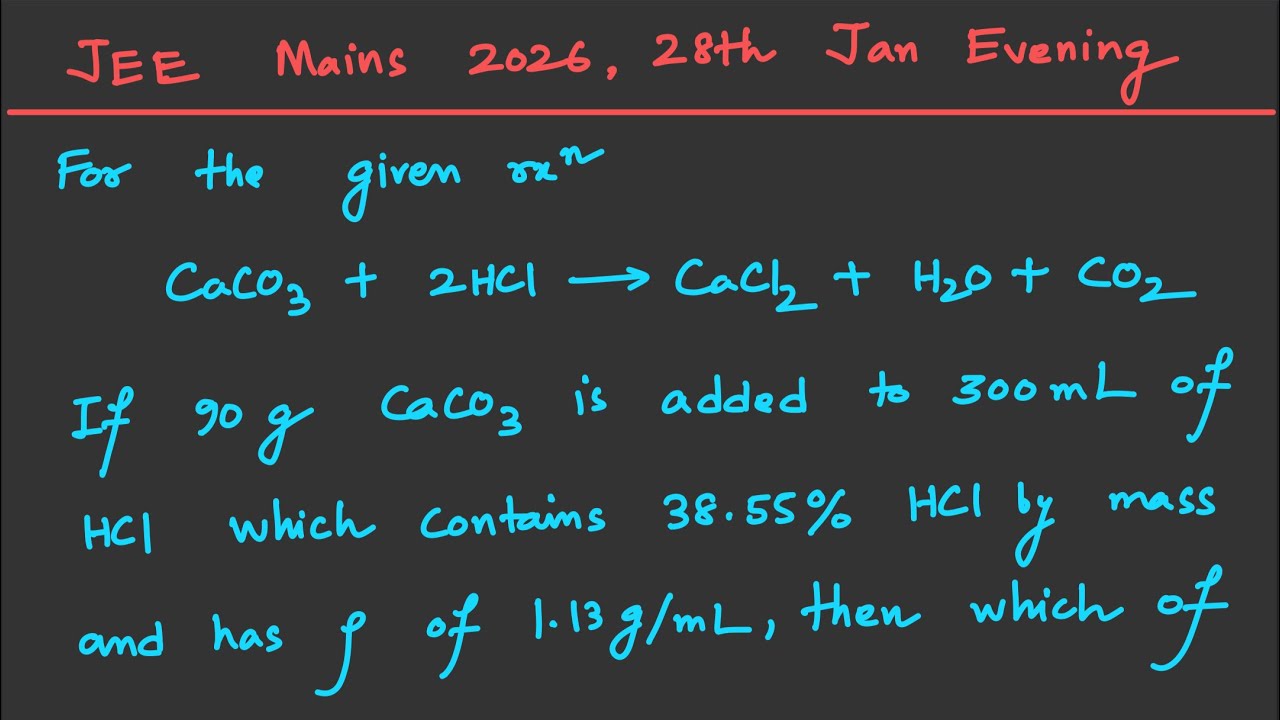 JEE Mains 2026, 28th Jan Evening
For the given rxⁿ
CaCO₃ + 2HCl ⟶ CaCl₂ + H₂O + CO₂
If 90 g CaCO₃ is added to 300 mL of
HCl which contains 38.55% HCl by mass
and has ρ of 1.13 g/mL, then which of